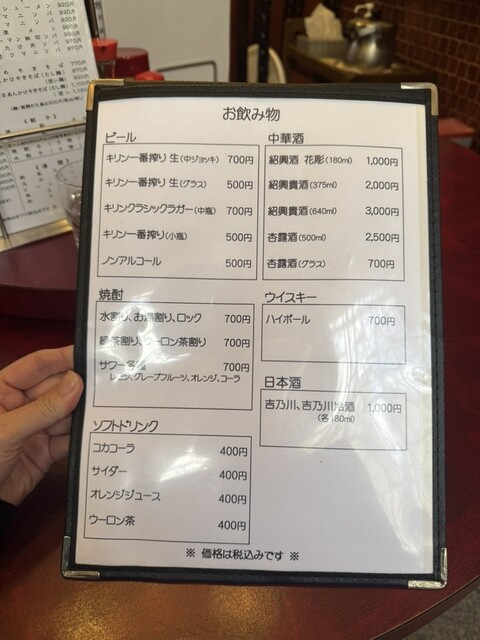 お飲み物
ビール
キリン一番搾り 生(中ジョッキ) 700円
キリン一番搾り 生(グラス) 500円
キリンクラシックラガー(中瓶) 700円
キリン一番搾り(小瓶) 500円
ノンアルコール 500円
中華酒
紹興酒 花彫(180ml) 1,000円
紹興貴酒(375ml) 2,000円
紹興貴酒(640ml) 3,000円
杏露酒(500ml) 2,500円
杏露酒(グラス) 700円
焼酎
水割り、お湯割り、ロック 700円
緑茶割り、ウーロン茶割り 700円
サワー各種 700円
レモン、グレープフルーツ、オレンジ、コーラ
ウイスキー
ハイボール 700円
日本酒
吉乃川、吉乃川冷酒 1,000円
(各180ml)
ソフトドリンク
コカコーラ 400円
サイダー 400円
オレンジジュース 400円
ウーロン茶 400円
※ 価格は税込みです ※